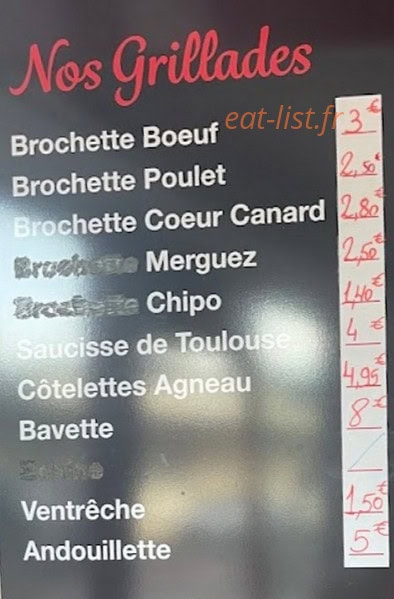 Nos Grillades
eat-list.fr
Brochette Boeuf 3€
Brochette Poulet 2,50€
Brochette Coeur Canard 2,80€
Brochette Merguez 2,50€
Brochette Chipo 1,40€
Saucisse de Toulouse 4€
Côtelettes Agneau 4,95€
Bavette 8€
Ventrêche 1,50€
Andouillette 5€